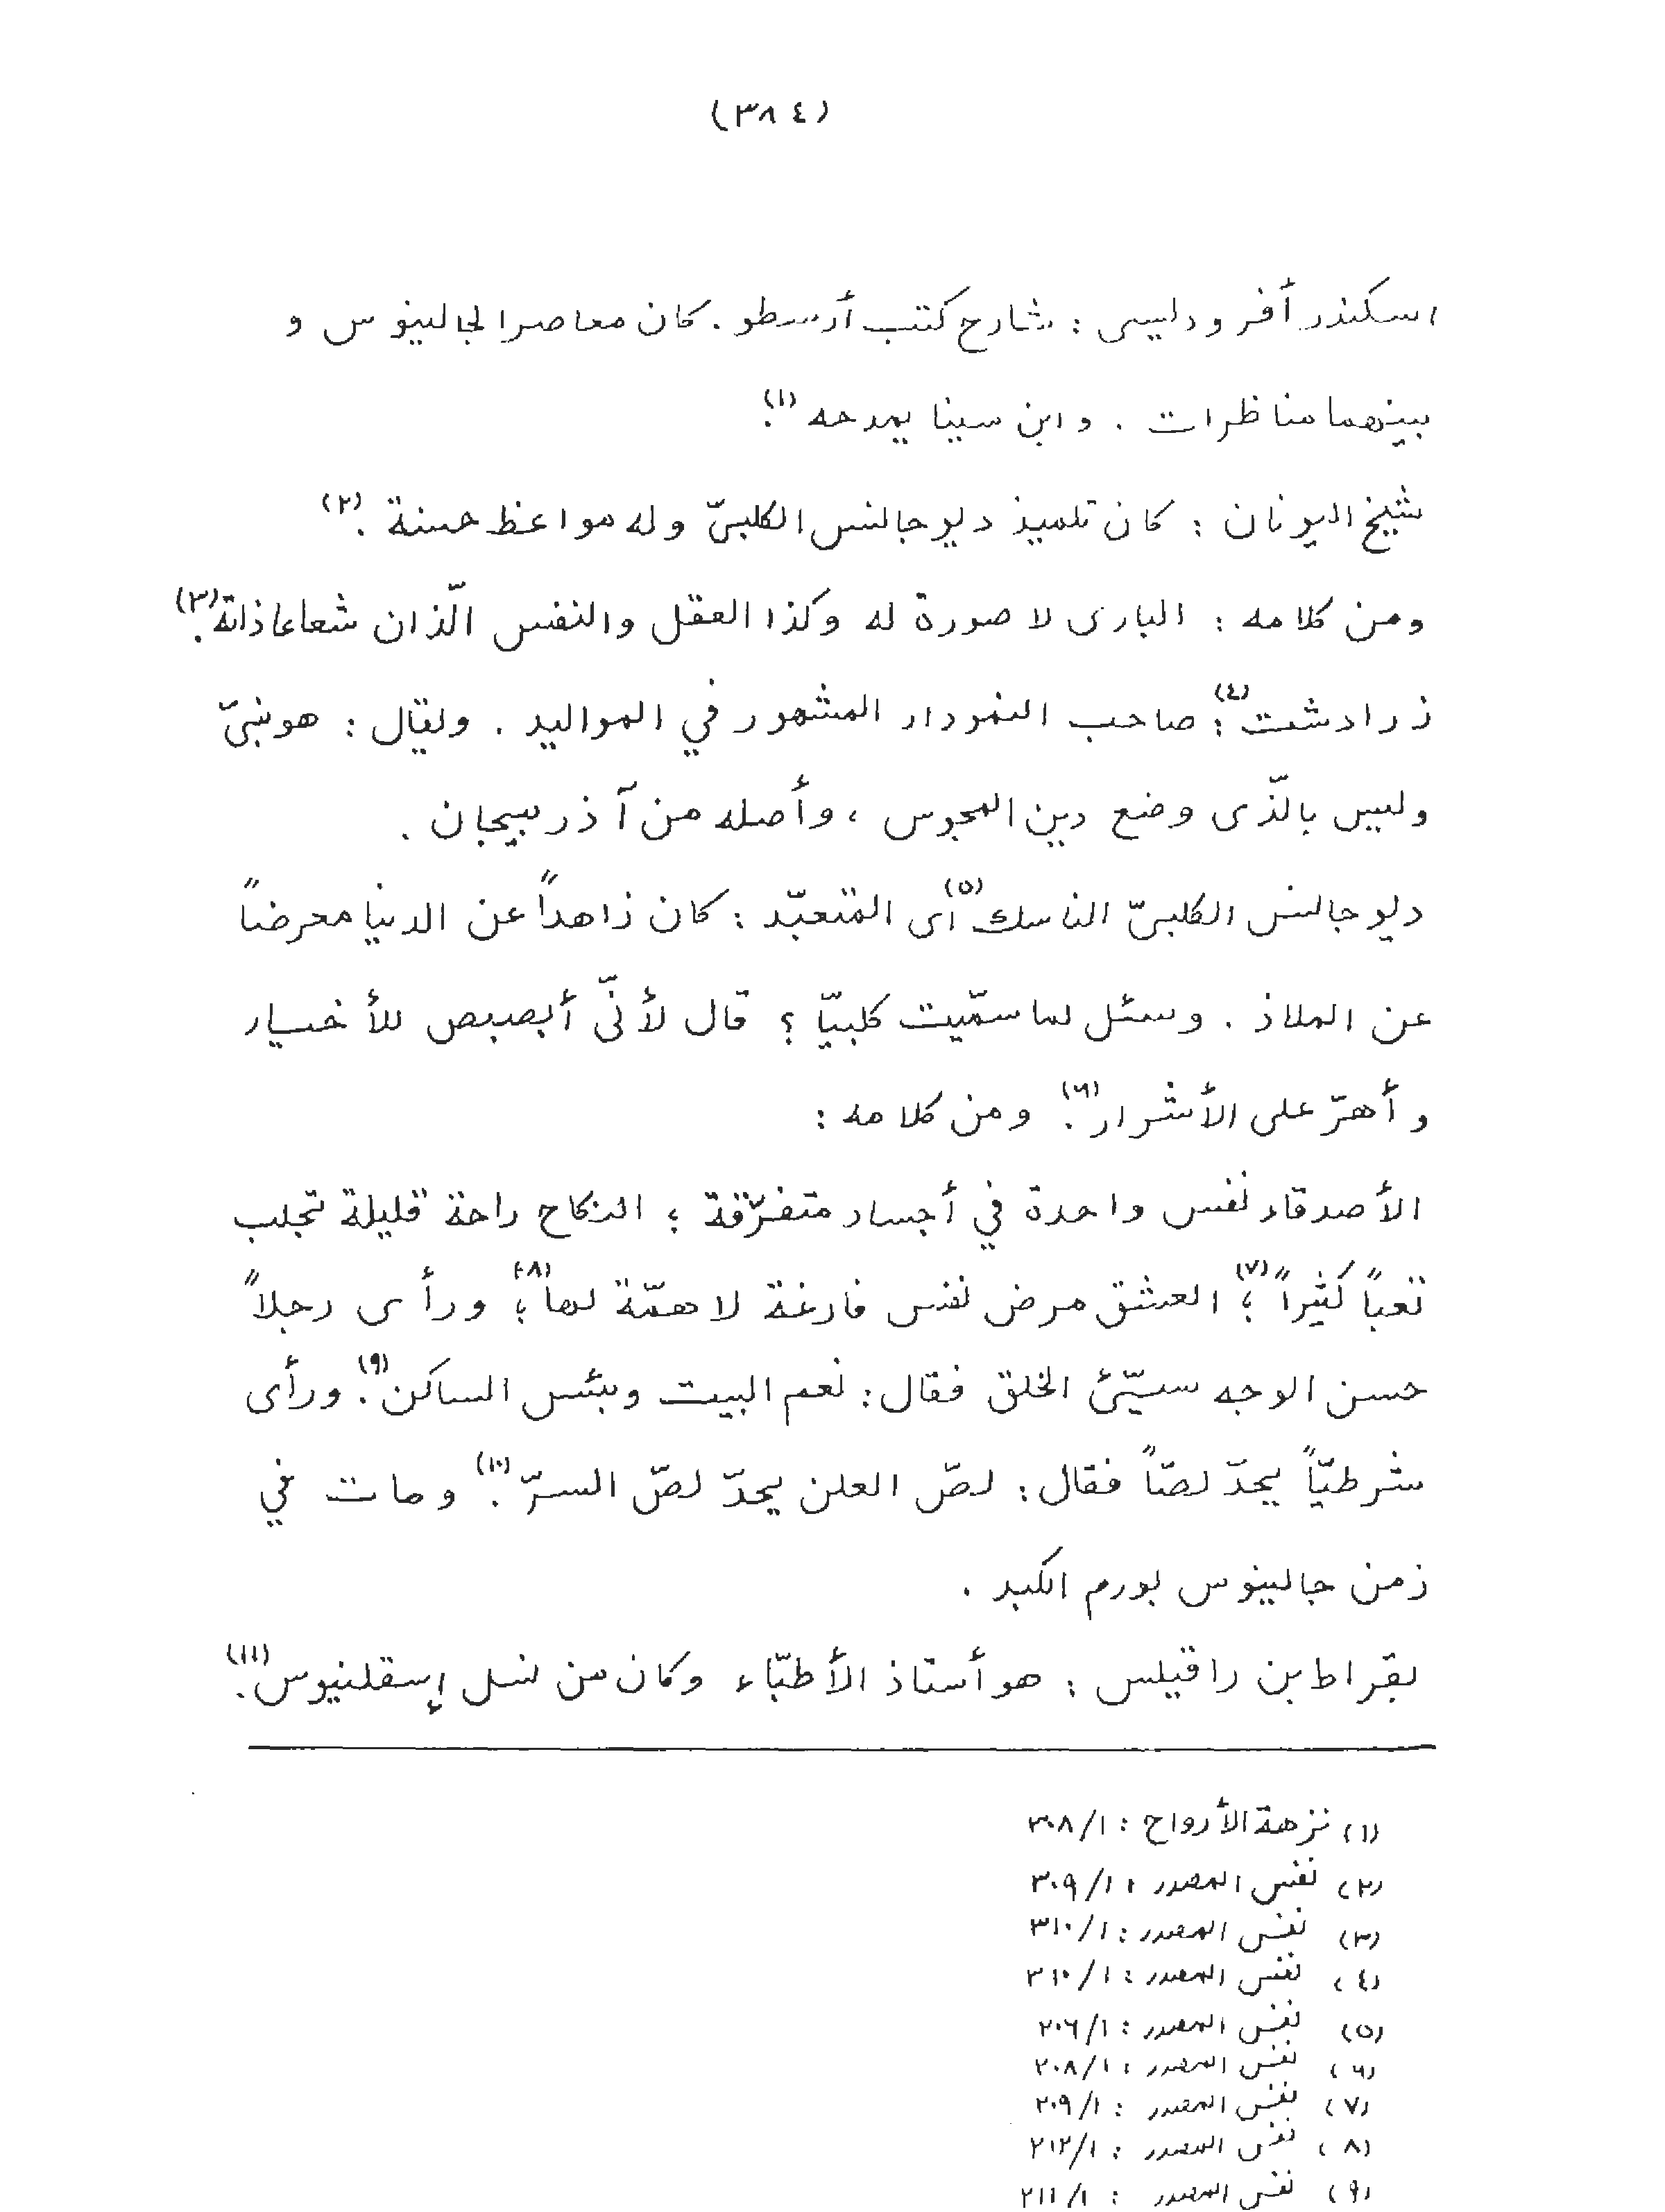 (٣٨٤)
اسكندر أفروديسى : شارح كتب أرسطو . كان معاصرا لجالينوس و
بينهما مناظرات . وابن سينا يمدحه (١).
شيخ اليونان : كان تلميذ ديوجانس الكلبىّ وله مواعظ حسنة (٢).
ومن كلامه : البارى لا صورة له وكذا العقل والنفس الّذان شعاعا ذاته (٣).
زرادشت (٤): صاحب النمودار المشهور في المواليد . ويقال : هو نبىّ
وليس بالّذى وضع دين المجوس ، وأصله من آذربيجان .
ديوجانس الكلبىّ الناسك (٥) أى المتعبّد : كان زاهداً عن الدنيا معرضاً
عن الملاذ . وسئل لما سمّيت كلبيّا ؟ قال لأنّى أبصبص للأخيار
وأهرّ على الأشرار (٦). ومن كلامه :
الأصدقاء نفس واحدة في أجساد متفرّقة ؛ النكاح راحة قليلة تجلب
تعباً كثيراً (٧)؛ العشق مرض نفس فارغة لا همّة لها (٨)؛ ورأى رجلاً
حسن الوجه سيّئ الخلق فقال : نعم البيت وبئس الساكن (٩). ورأى
شرطيّاً يحدّ لصّاً فقال : لصّ العلن يحدّ لصّ السرّ (١٠). ومات في
زمن جالينوس بورم الكبد .
بقراط بن راقيلس : هو أستاذ الأطبّاء وكان من نسل إسقلنيوس (١١).
(١) نزهة الأرواح : ٣٠٨/١
(٢) نفس المصدر : ٣٠٩/١
(٣) نفس المصدر : ٣١٠/١
(٤) نفس المصدر : ٣١٠/١
(٥) نفس المصدر : ٢٠٦/١
(٦) نفس المصدر : ٢٠٨/١
(٧) نفس المصدر : ٢٠٩/١
(٨) نفس المصدر : ٢١٢/١
(٩) نفس المصدر : ٢١١/١